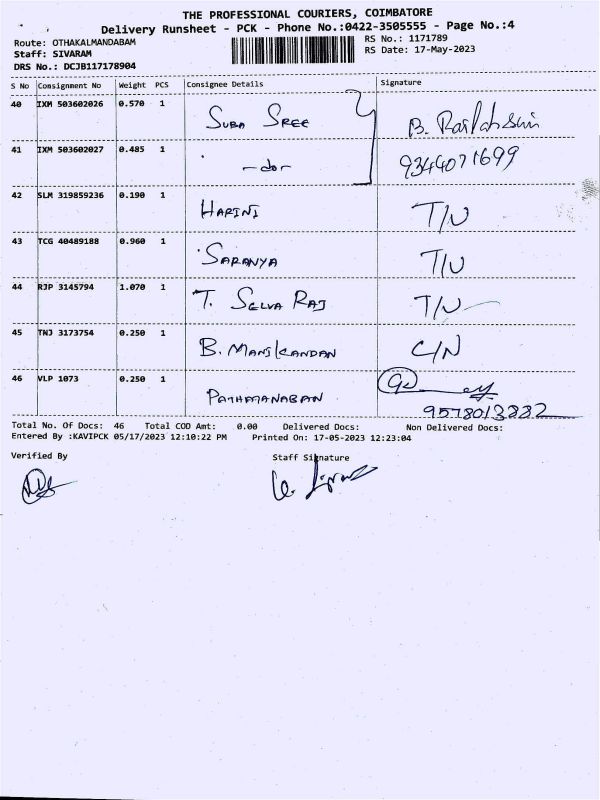 THE PROFESSIONAL COURIERS, COIMBATORE
Delivery Runsheet - PCK - Phone No.:0422-3505555 - Page No.:4
Route: OTHAKALMANDABAM
RS No.: 1171789
Staff: SIVARAM
RS Date: 17-May-2023
DRS No.: DCJB117178904
S No Consignment No Weight PCS Consignee Details Signature
40 IXM 503602026 0.570 1 SUBA SREE B.
41 IXM 503602027 0.485 1 -do- 9344071699
42 SLM 319859236 0.190 1 HARINI T/N
43 TCG 40489188 0.960 1 SARANYA T/N
44 RJP 3145794 1.070 1 T. SELVA RAJ T/N
45 TNJ 3173754 0.250 1 B. MANIKANDAN C/N
46 VLP 1073 0.250 1 PATHMANABAN
9578013882
Total No. Of Docs: 46 Total COD Amt: 0.00 Delivered Docs: Non Delivered Docs:
Entered By :KAVIPCK 05/17/2023 12:10:22 PM Printed On: 17-05-2023 12:23:04
Verified By Staff Signature